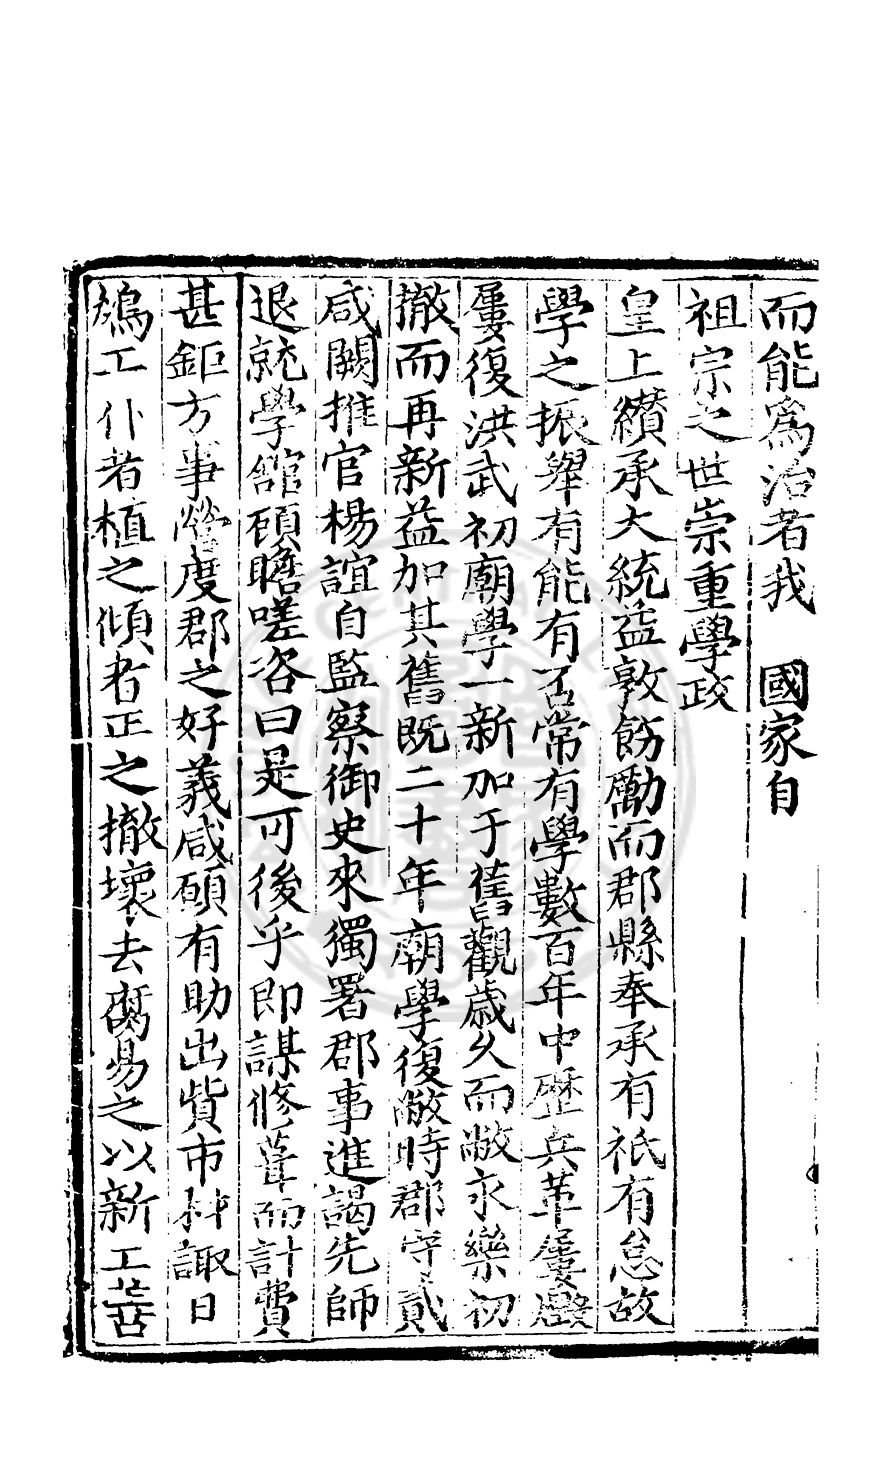 而能爲治者我　國家自
祖宗之世崇重學政
皇上纘承大統益敦飭勵而郡縣奉承有祇有怠故
學之振舉有能有否常有學數百年中歷兵革屢廢
屢復洪武初廟學一新加于舊觀歲久而敝永樂初
撤而再新益加其舊既二十年廟學復敝時郡守貳
咸闕推官楊誼自監察御史來獨署郡事進謁先師
退就學舘顧瞻嗟咨曰是可後乎即謀修葺而計費
甚鉅方事營度郡之好義咸願有助出貲市材諏日
鳩工仆者植之傾者正之撤壞去腐易之以新工善